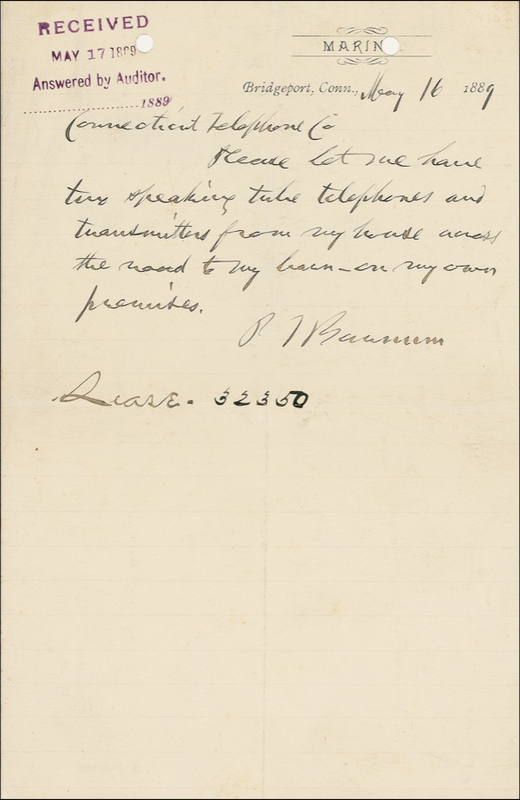 RECEIVED
MAY 17 1889
Answered by Auditor.
1889
MARIN
Bridgeport, Conn., May 16 1889
Connecticut Telephone Co
Please let me have
two speaking tube telephones and
transmitters from my house across
the road to my barn - on my own
premises.
P T Barnum
Lease. 32350